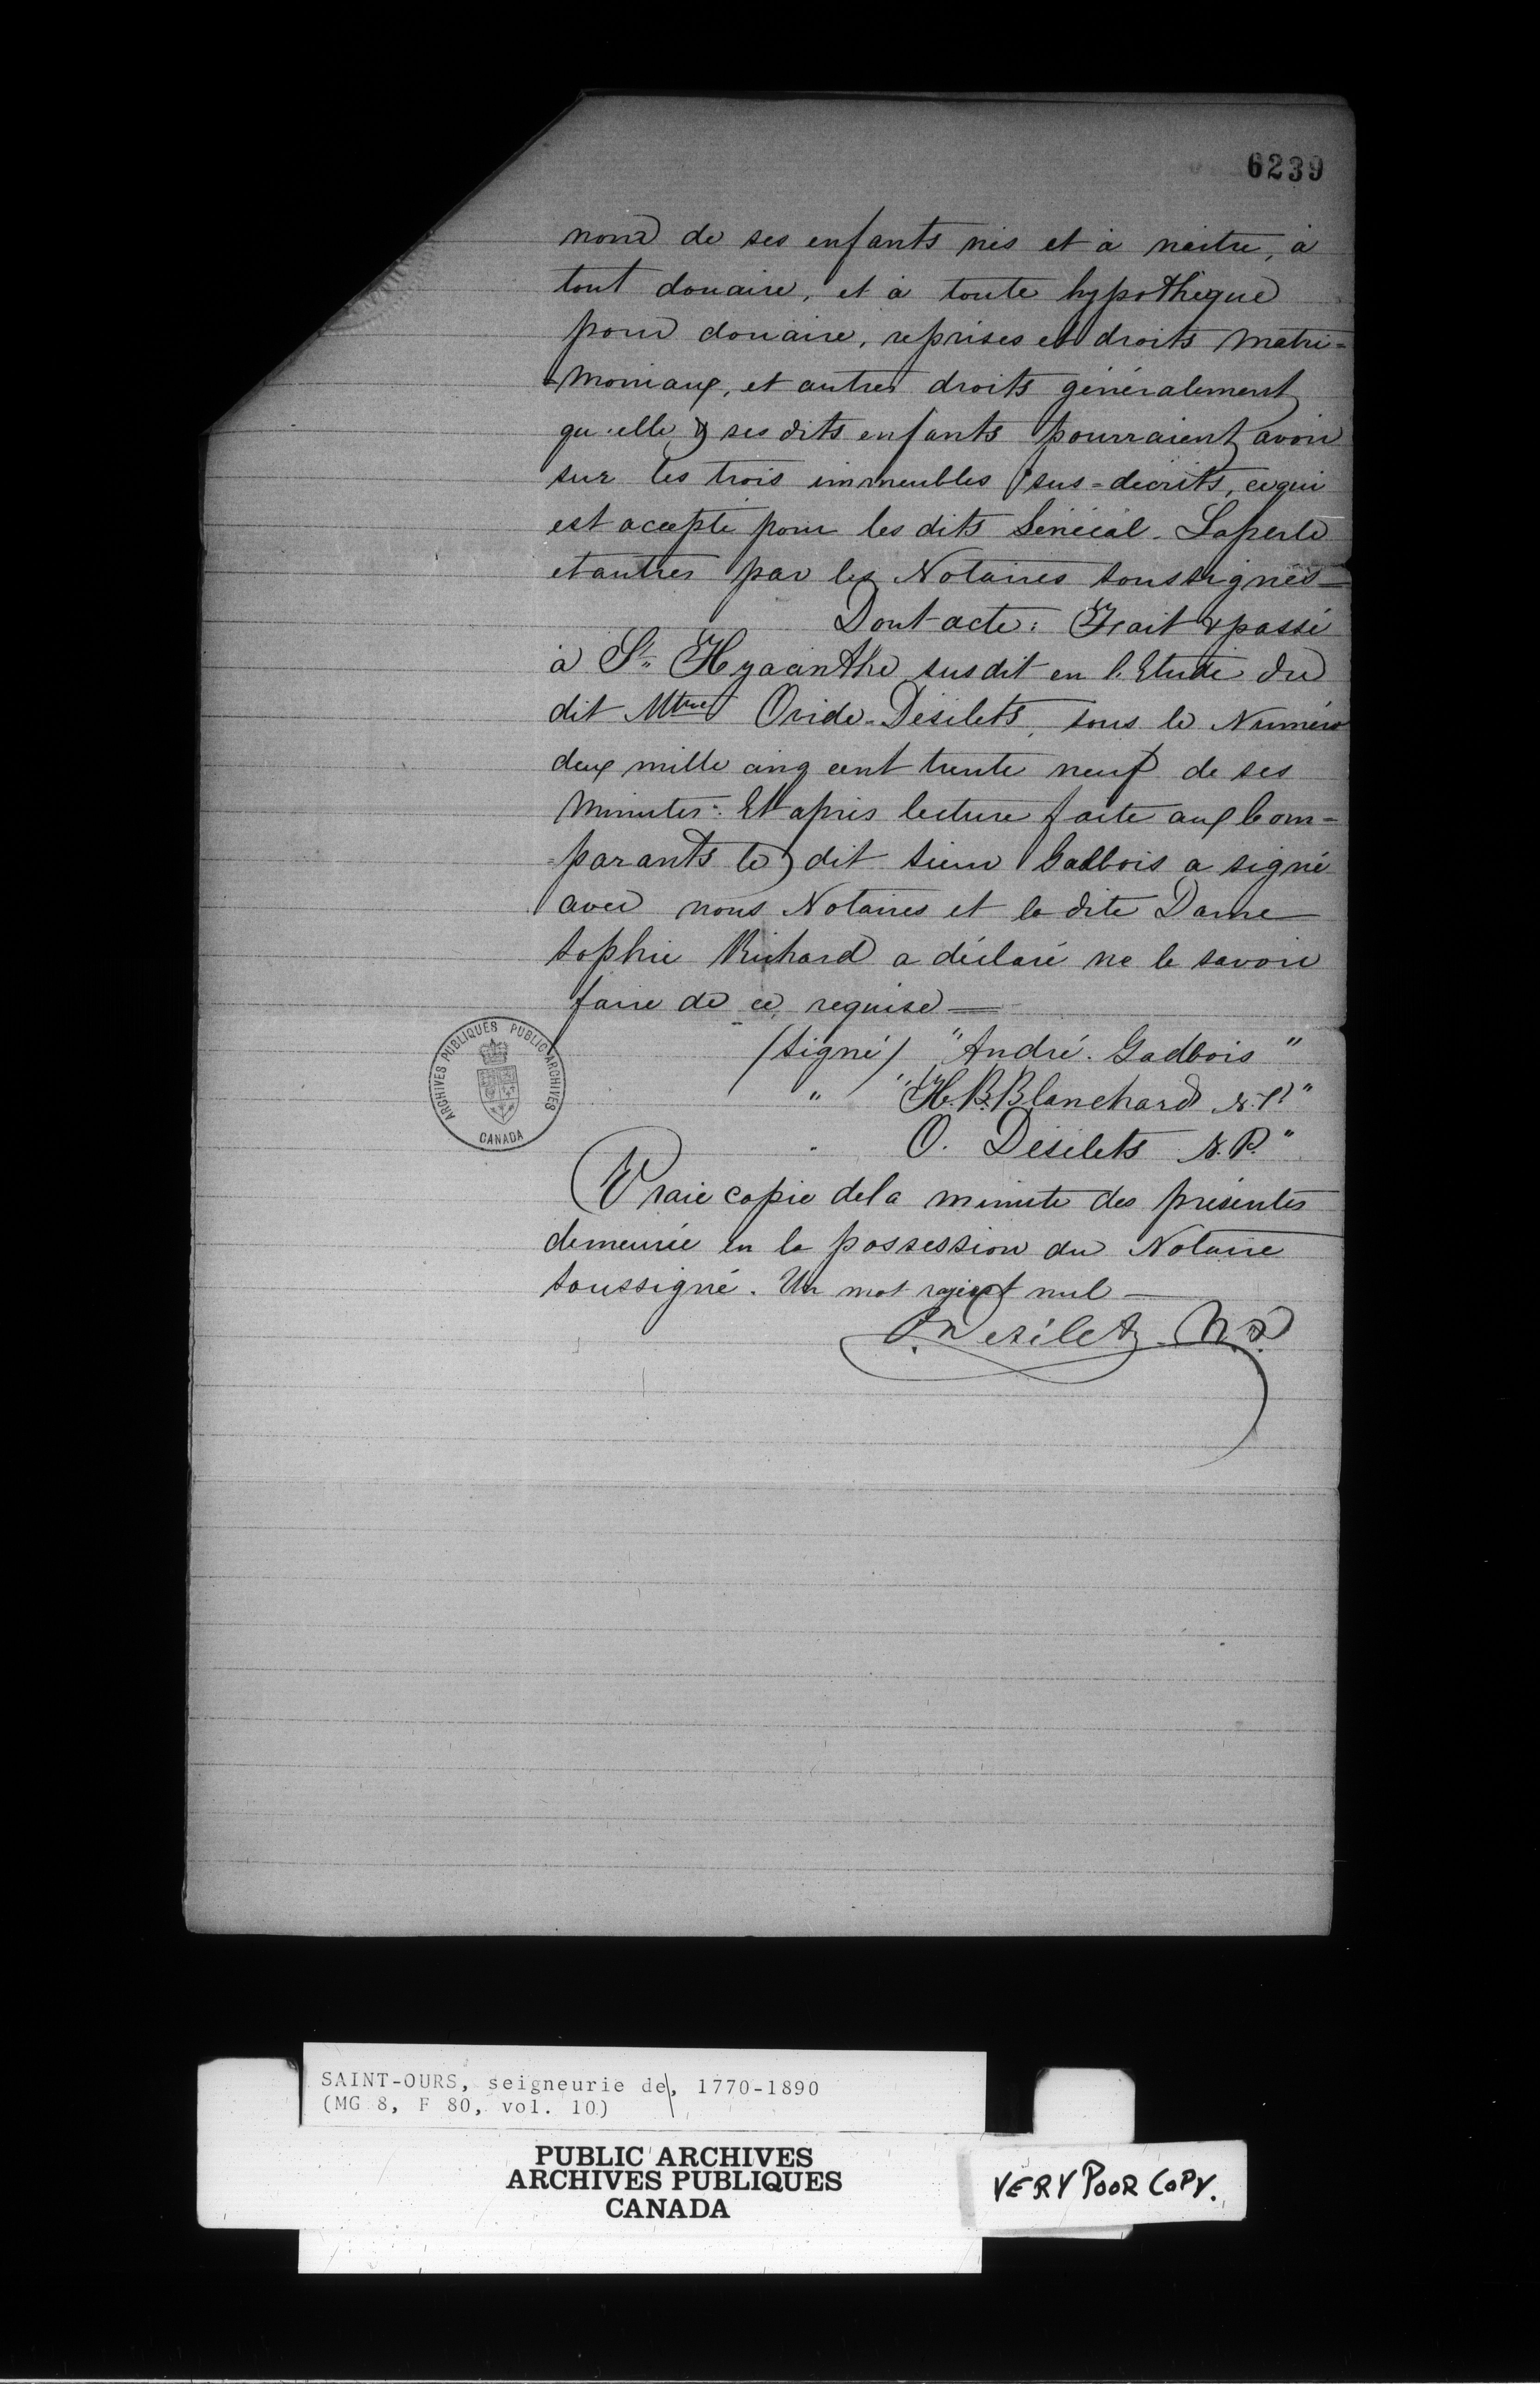 6239
nom de ses enfants nés et à naître, à
tout douaire, et à toute hypothèque
pour douaire, reprises et droits matri=
=moniaux, et autres droits généralement
qu'elle & ses dits enfants pourraient avoir
sur les trois immeubles sus=décrits, ce qui
est accepté pour les dits Sénécal. Laperle
et autres par les Notaires soussignés—
Dont acte: Fait & passé
à St. Hyacinthe susdit en l'Etude du
dit Mtre Ovide Désilets, sous le Numéro
deux mille cinq cent trente neuf de ses
minutes: Et après lecture faite aux Com=
=parants le dit sieur Gadbois a signé
avec nous Notaires et la dite Dame
Sophie Richard a déclaré ne le savoir
faire de ce requise—
(signé) "André. Gadbois"
" "H. B. Blanchard N.P."
" O. Désilets N.P."
Vraie copie de la minute des présentes
demeurée en la possession du Notaire
soussigné. Un mot rayé est nul—
O. Desilets N.P.
ARCHIVES PUBLIQUES PUBLIC ARCHIVES
CANADA
SAINT-OURS, seigneurie de, 1770-1890
(MG 8, F 80, vol. 10)
PUBLIC ARCHIVES
ARCHIVES PUBLIQUES
CANADA
VERY POOR COPY.